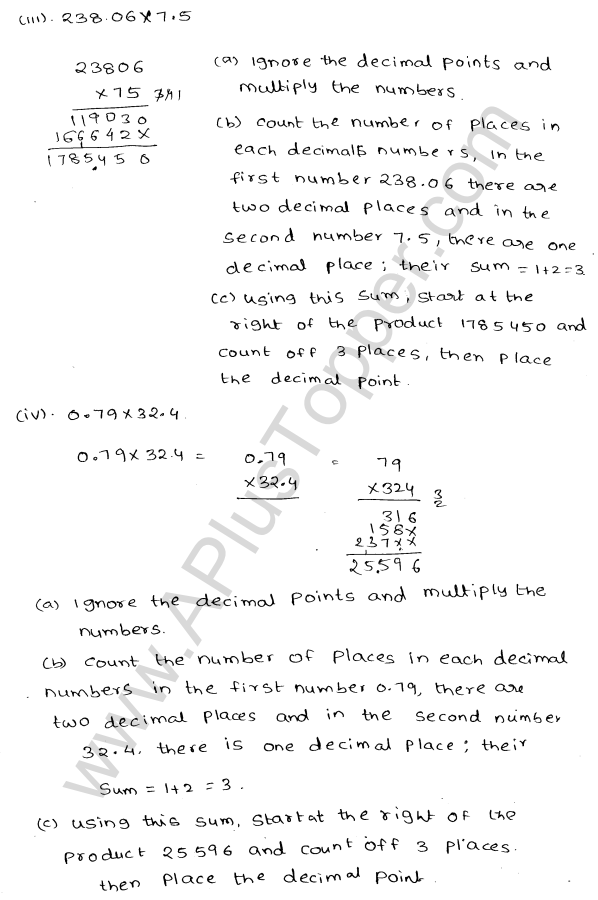 (iii). 238.06×7.5
23806
×75 741
119030
166642×
1785.450
(a) Ignore the decimal points and
multiply the numbers.
(b) count the number of places in
each decimals numbers, in the
first number 238.06 there are
two decimal places and in the
second number 7.5, there are one
decimal place; their sum = 1+2=3
(c) using this sum, start at the
right of the product 1785450 and
count off 3 places, then place
the decimal point.
(iv). 0.79×32.4.
0.79×32.4 = 0.79 = 79
×32.4 ×324 3/2
316
158×
237××
25.596
(a) Ignore the decimal points and multiply the
numbers.
(b) count the number of places in each decimal
numbers in the first number 0.79, there are
two decimal places and in the second number
32.4. there is one decimal place; their
Sum = 1+2 = 3.
(c) using this sum, start at the right of the
product 25596 and count off 3 places.
then place the decimal point.
www.APlusTopper.com